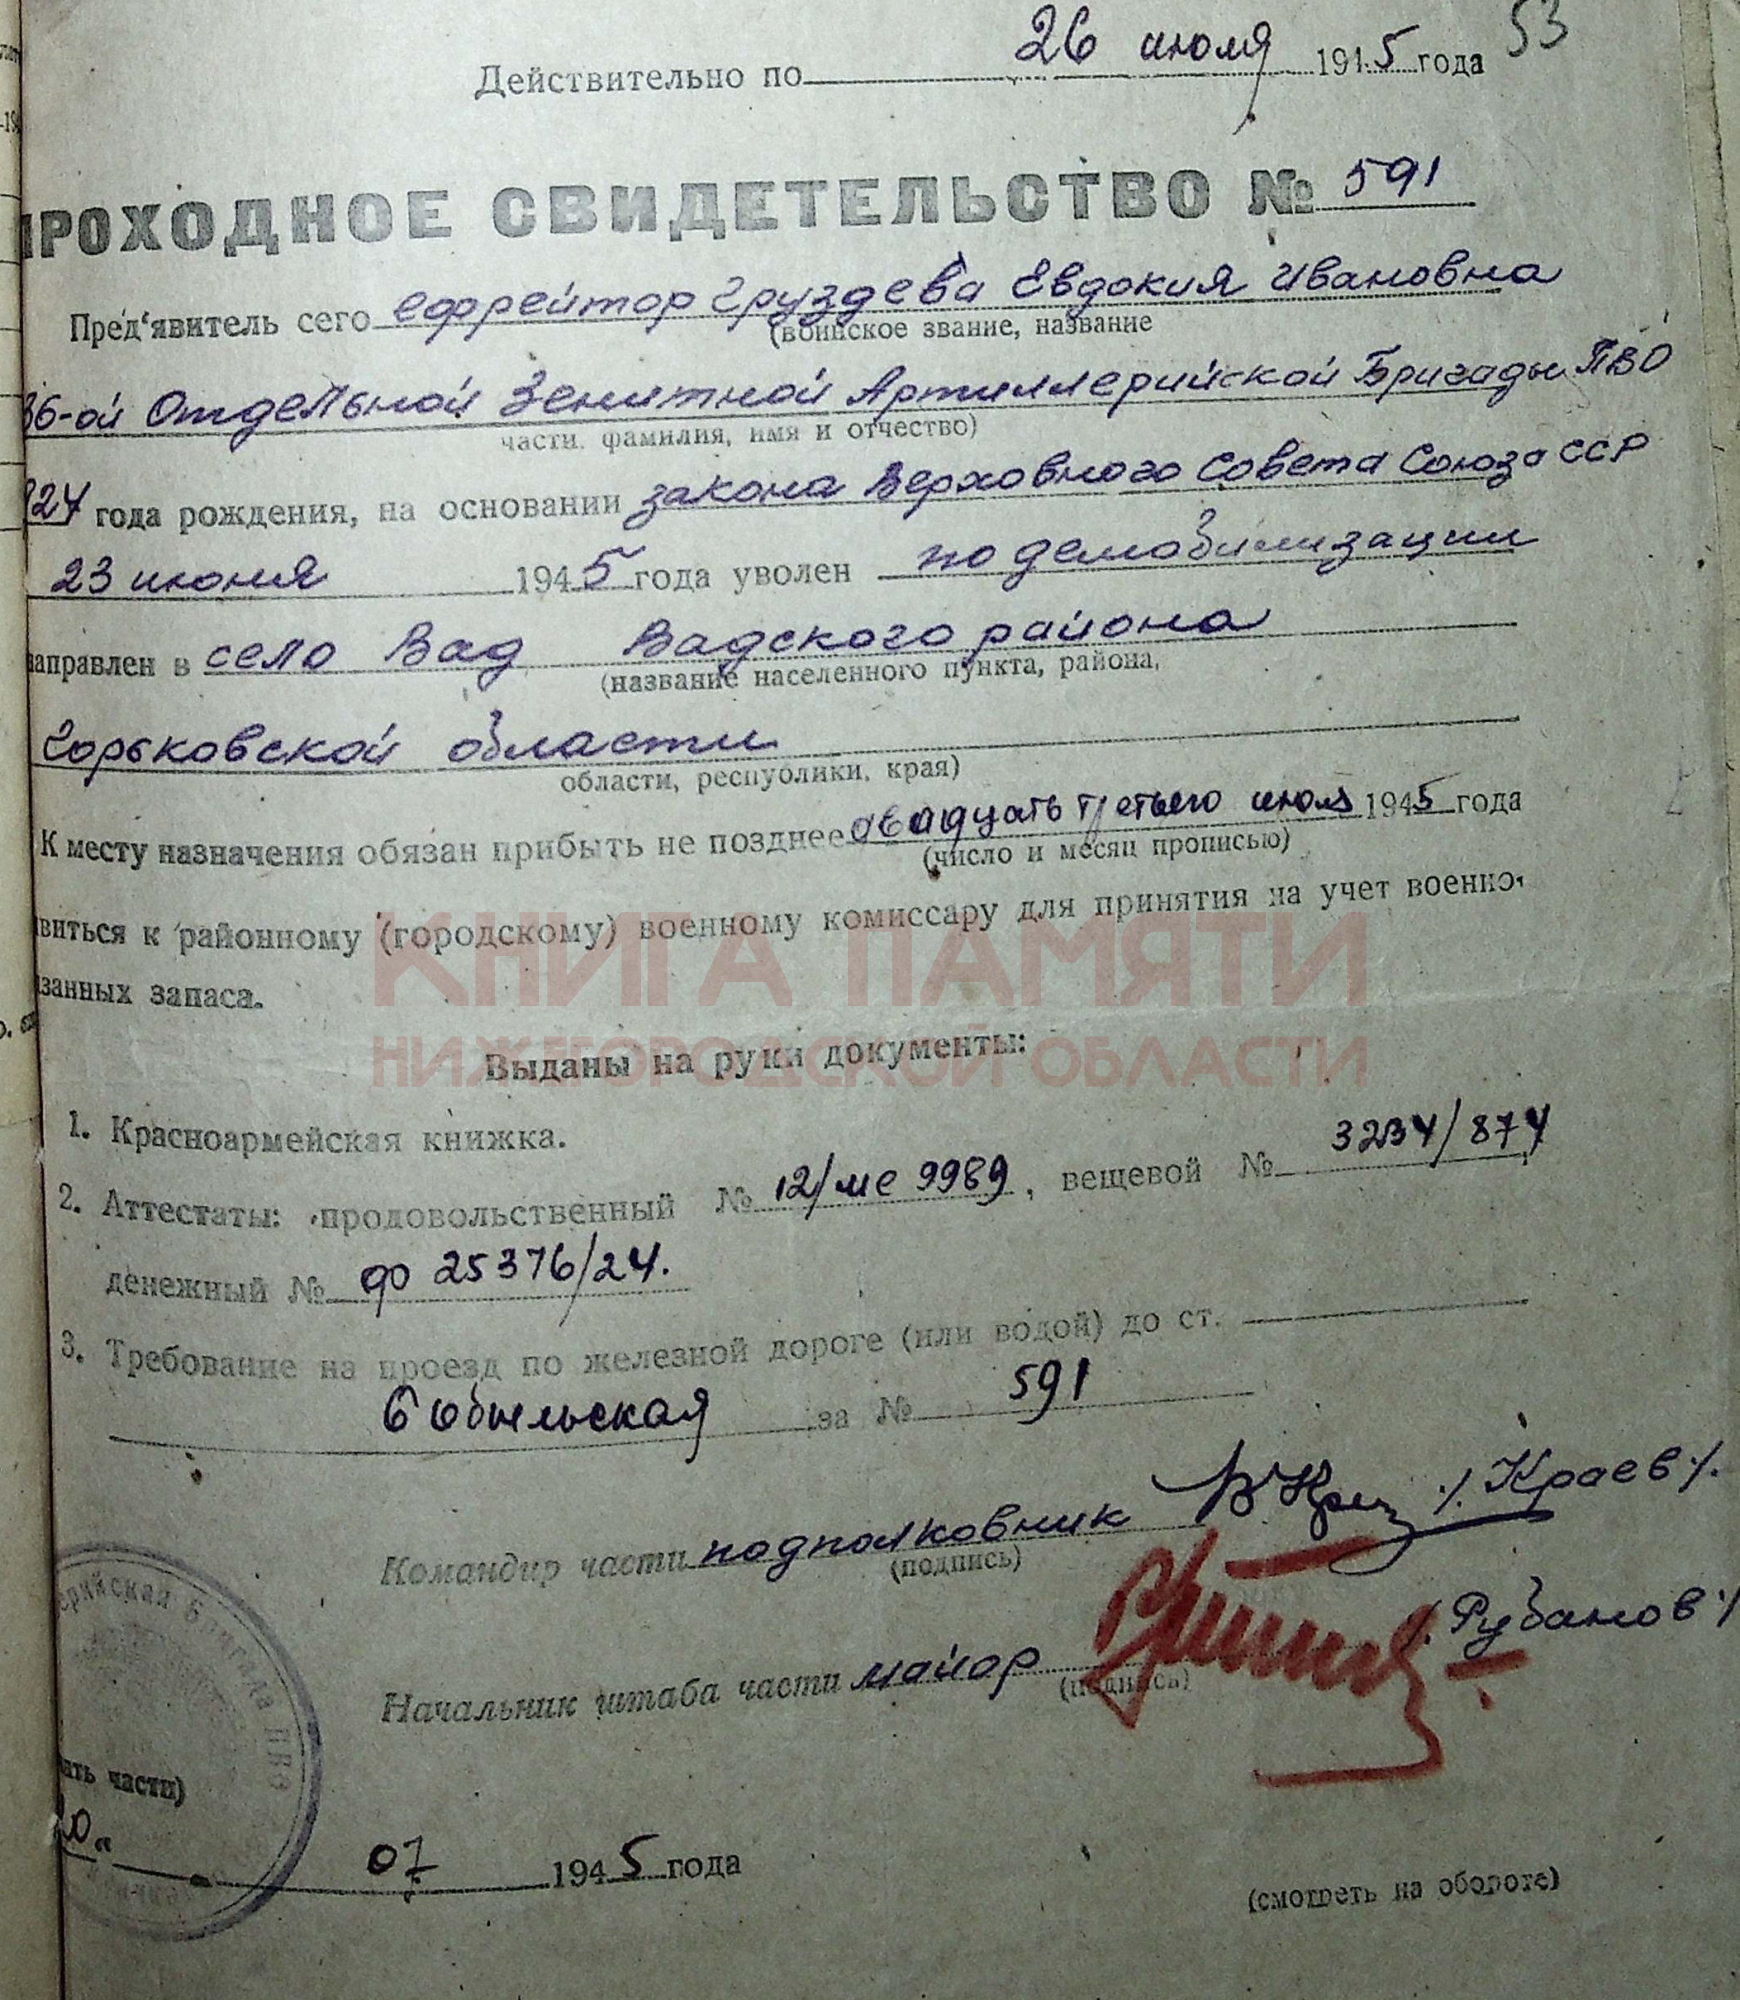 53
Действительно по 26 июля 1945 года
ПРОХОДНОЕ СВИДЕТЕЛЬСТВО № 591
Пред'явитель сего ефрейтор Груздева Евдокия Ивановна
(воинское звание, название
36-ой Отдельной Зенитной Артиллерийской Бригады ПВО
части, фамилия, имя и отчество)
924 года рождения, на основании закона Верховного Совета Союза ССР
23 июня 1945 года уволен по демобилизации
направлен в село Вад Вадского района
(название населенного пункта, района,
Горьковской области
области, республики, края)
К месту назначения обязан прибыть не позднее двадцать третьего июля 1945 года
(число и месяц прописью)
виться к районному (городскому) военному комиссару для принятия на учет военно-
занных запаса.
КНИГА ПАМЯТИ
НИЖЕГОРОДСКОЙ ОБЛАСТИ
Выданы на руки документы:
1. Красноармейская книжка.
2. Аттестаты: продовольственный № 12/ме 9989, вещевой № 3234/874
денежный № фо 25376/24.
3. Требование на проезд по железной дороге (или водой) до ст.
за № 591
Командир части подполковник /Краев/.
(подпись)
Начальник штаба части майор /Рубанов/
(подпись)
ерийская Бригада ПВО
ать части)
20 " 07 1945 года
(смотреть на обороте)